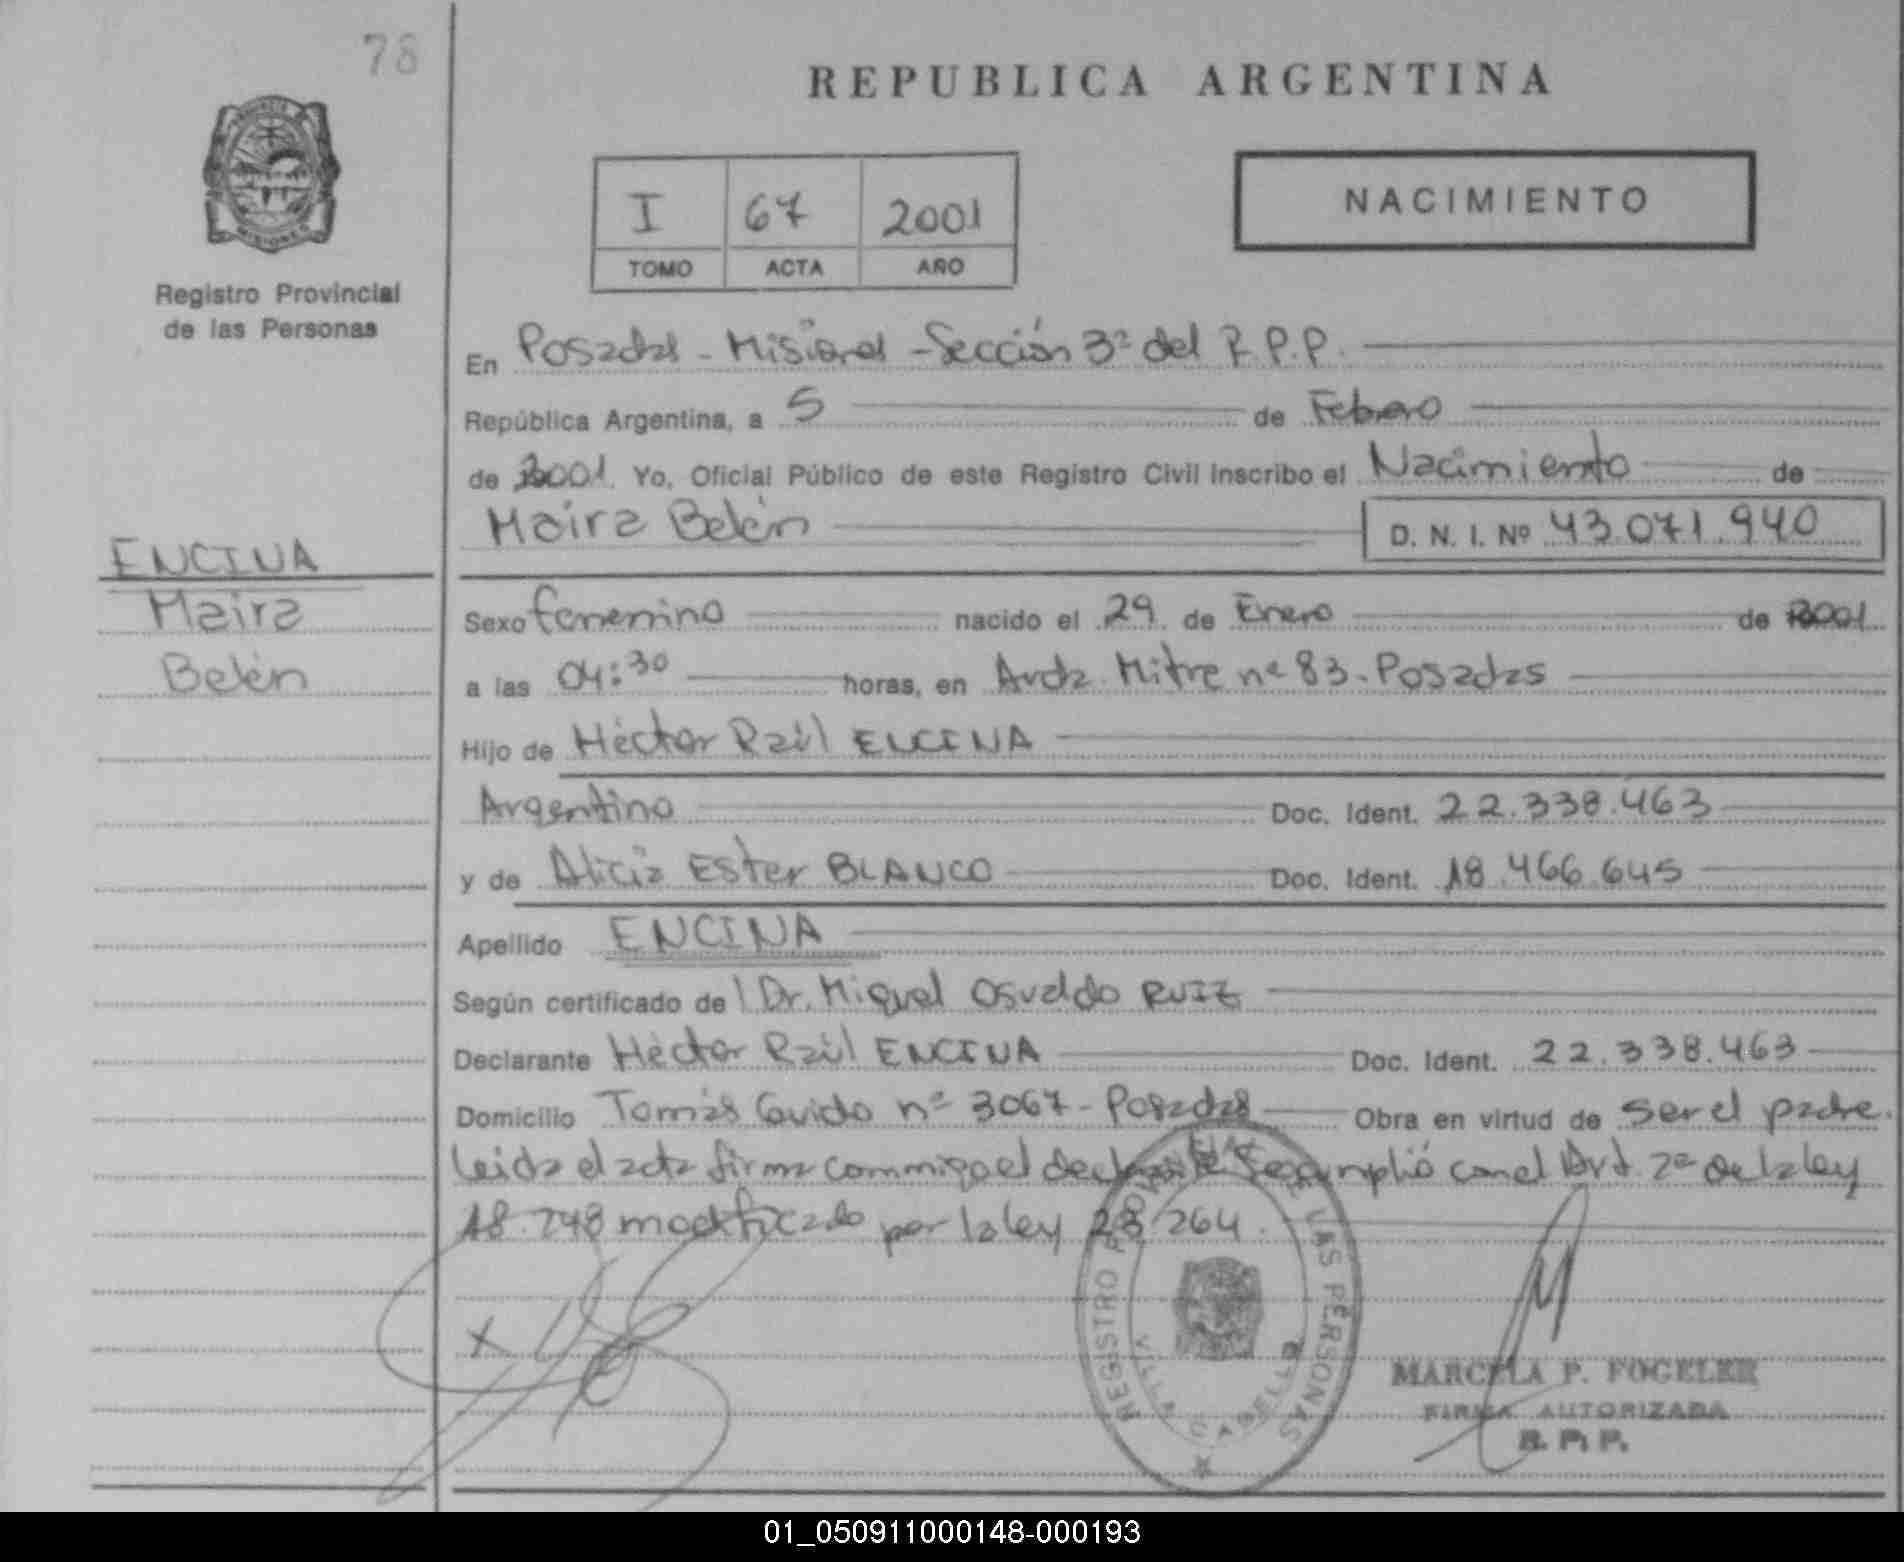 78
REPUBLICA ARGENTINA
PROVINCIA
MISIONES
Registro Provincial
de las Personas
I 67 2001
TOMO ACTA AÑO
NACIMIENTO
En Posadas - Misiones - Sección 3ª del R.P.P.
República Argentina, a 5 de Febrero
de 2001. Yo, Oficial Público de este Registro Civil inscribo el Nacimiento de
Maira Belén D. N. I. Nº 43.071.940
ENCINA
Maira
Belén
Sexo femenino nacido el 29 de Enero de 2001
a las 04:30 horas, en Avda. Mitre nº 83 - Posadas
Hijo de Héctor Raúl ENCINA
Argentino Doc. Ident. 22.338.463
y de Alicia Ester BLANCO Doc. Ident. 18.466.645
Apellido ENCINA
Según certificado de l Dr. Miguel Osvaldo RUIZ
Declarante Héctor Raúl ENCINA Doc. Ident. 22.338.463
Domicilio Tomás Guido nº 3067 - Posadas Obra en virtud de ser el padre.
Leida el acta firma conmigo el declarante Se cumplió con el Art. 2º de la ley
18.248 modificado por la ley 23.264.
X
REGISTRO PROVINCIAL DE LAS PERSONAS
VILLA CABELLO
MARCELA P. FOGELER
FIRMA AUTORIZADA
R. P. P.
01_050911000148-000193